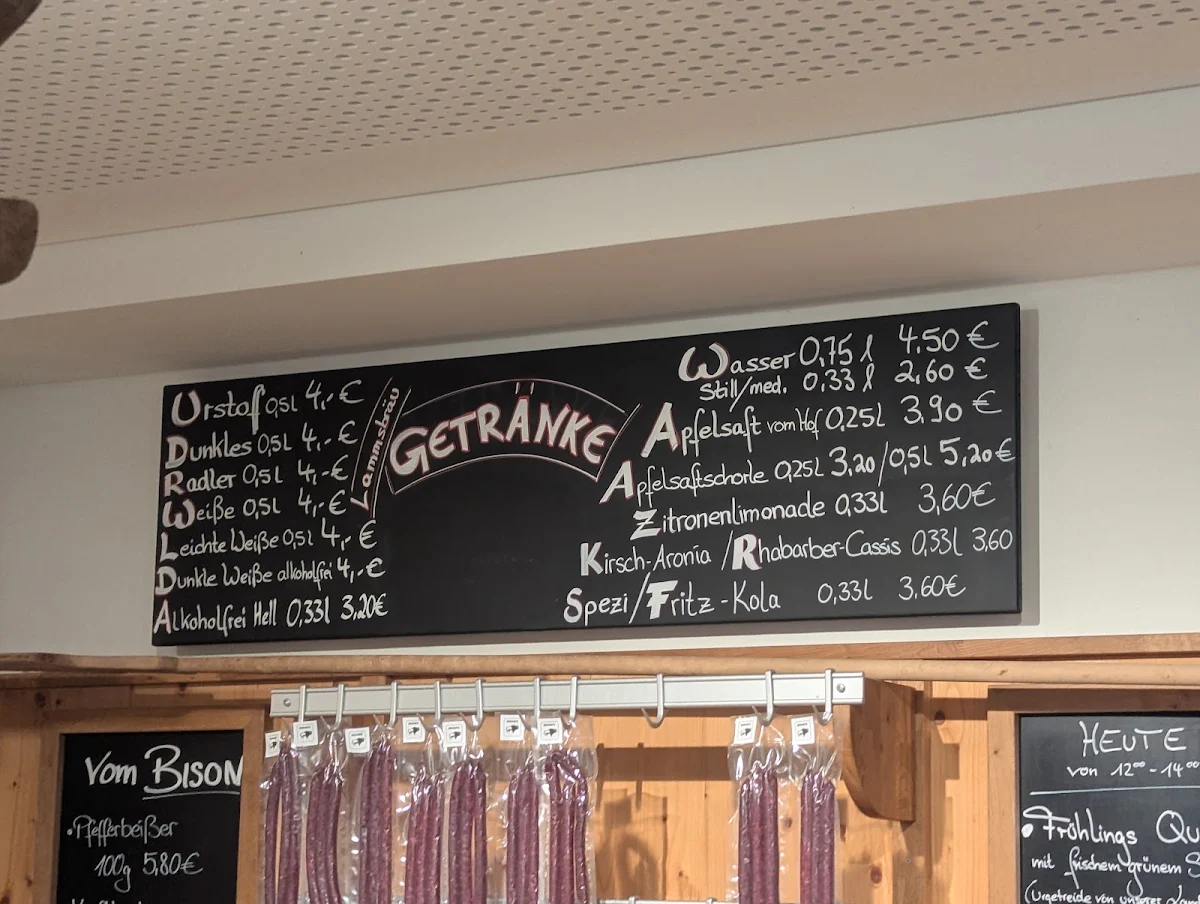 GETRÄNKE
Lammsbräu
Urstoff 0,5l 4,- €
Dunkles 0,5l 4,- €
Radler 0,5l 4,- €
Weiße 0,5l 4,- €
Leichte Weiße 0,5l 4,- €
Dunkle Weiße alkoholfrei 4,- €
Alkoholfrei Hell 0,33l 3,20€
Wasser 0,75 l 4.50 €
Still/med. 0,33 l 2,60 €
Apfelsaft vom Hof 0,25l 3,90 €
Apfelsaftschorle 0,25l 3,20/0,5l 5,20€
Zitronenlimonade 0,33l 3,60€
Kirsch-Aronia /Rhabarber-Cassis 0,33l 3,60
Spezi/Fritz-Kola 0,33l 3,60€
Vom BISON
•Pfefferbeißer
100g 5,80€
HEUTE
von 12⁰⁰-14⁰⁰
• Frühlings Qu
mit frischem grünem S
(Urgetreide von unserer